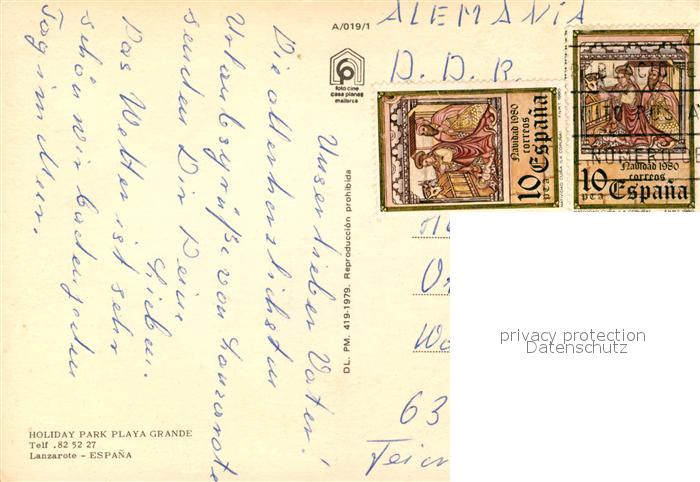 A/019/1
ALEMANIA
D. D. R.
foto cine
casa planas
mallorca
Navidad 1980
correos
10 PTA España
Navidad 1980
correos
10 PTA España
Unser lieber Vater!
Die allerherzlichsten
Urlaubsgrüße von Lanzarote
senden Dir Deine
Lieben.
Das Wetter ist sehr
schön wir baden jeden
Tag im Meer.
DL. PM. 419-1979. Reproducción prohibida
63
HOLIDAY PARK PLAYA GRANDE
Telf .82 52 27
Lanzarote - ESPAÑA
privacy protection
Datenschutz